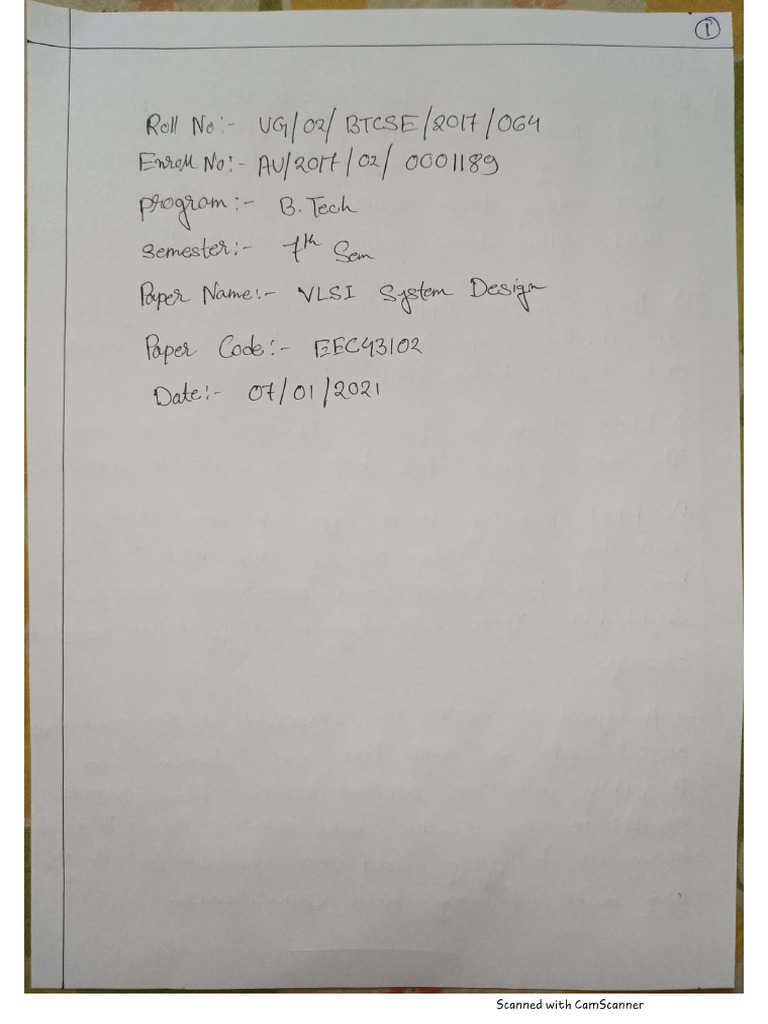 1
Roll No:- UG/02/BTCSE/2017/064
Enroll No:- AU/2017/02/0001189
program:- B.Tech
semester:- 7th Sem
Paper Name:- VLSI System Design
Paper Code:- EEC43102
Date:- 07/01/2021
Scanned with CamScanner